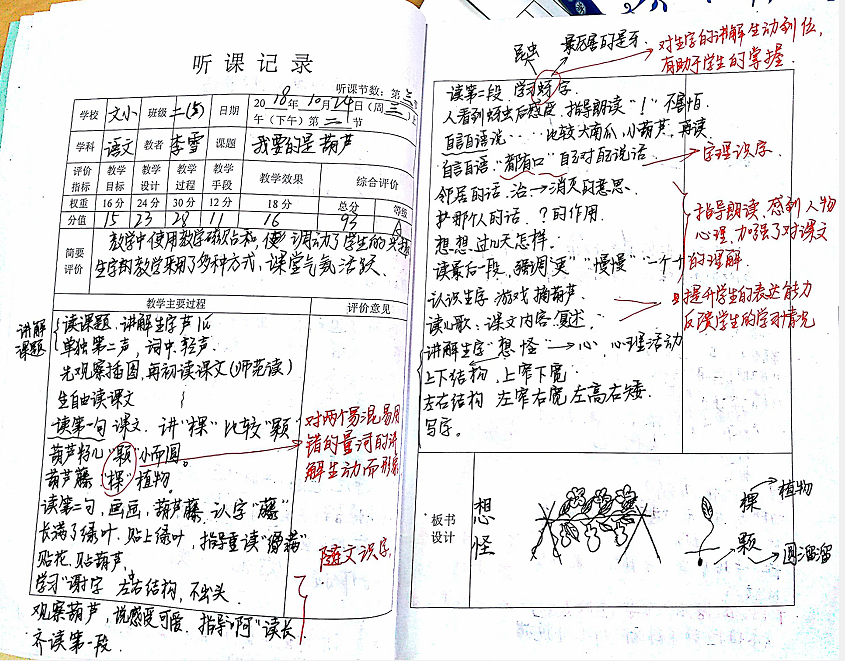 听课记录
听课节数：第三
学校 文小 班级 二(5) 日期 2018年10月24日(周三)上
午(下午)第二节
学科 语文 教者 李雪 课题 我要的是葫芦
评价指标 教学目标 教学设计 教学过程 教学手段 教学效果 综合评价
权重 16分 24分 30分 12分 18分 总分 等级
分值 15 23 28 11 16 93 A
简要评价
教学中使用教学 调动了学生的兴趣
生字的教学采用了多种方式，课堂气氛活跃.
教学主要过程 评价意见
讲解课题
读课题.讲解生字芦
单独第二声，词中.轻声.
先观察插图,再初读课文(师范读)
生自由读课文
读第一句 课文. 讲"棵"比较"颗"
葫芦籽儿"颗"小而圆。
葫芦藤"棵"植物。
读第二句,画画,葫芦藤,认字"藤"
长满了绿叶.贴上绿叶,指导重读"满"
贴花.贴葫芦.
学习"谢"字 左右结构,不出头.
观察葫芦,说感受可爱.指导"啊"读长
齐读第一段.
对两个易混易用
错的量词的讲
解生动而形象
随文识字
昆虫
对生字的讲解生动到位,
有助于学生的掌握.
读第二段 学习蚜字.
人看到蚜虫后感受.指导朗读"！"不害怕.
自言自语说…… 比较大南瓜.小葫芦.再读.
自言自语."都有口"自己对自己说话.
字理识字.
邻居的话.治→消灭的意思.
那个人的话.？的作用.
想想.过几天怎样.
读最后一段,强调"又""慢慢""一个个"
指导朗读.感到人物
心理,加强了对课文
的理解.
认识生字 游戏摘葫芦.
读儿歌:课文内容.复述.
提升学生的表达能力
反馈学生的学习情况
讲解生字 想 怪 →心,心理活动
上下结构,上窄下宽.
左右结构 左窄右宽 左高右矮.
写字。
板书设计
想
怪
棵 植物
颗 圆溜溜